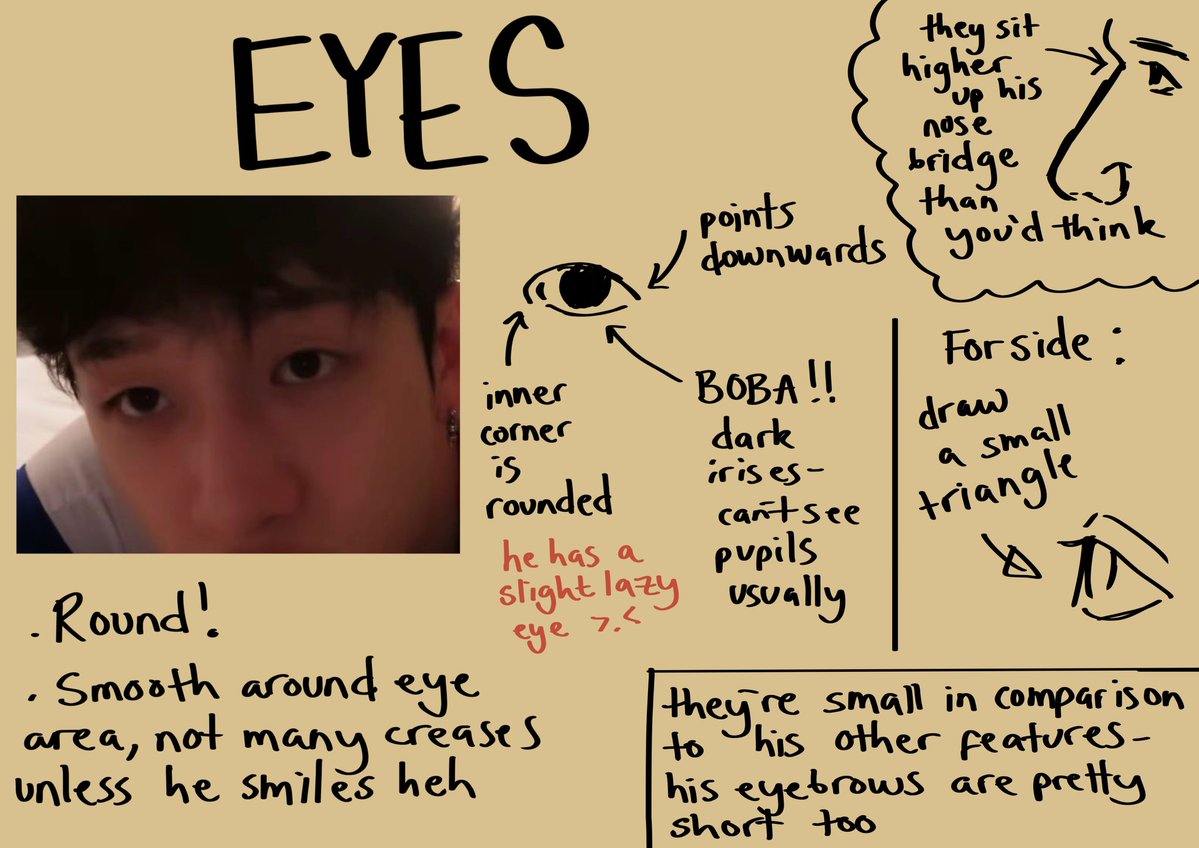 EYES
they sit
higher
up his
nose
bridge
than
you'd think
points
downwards
inner
corner
is
rounded
he has a
slight lazy
eye >.<
BOBA!!
dark
irises-
can't see
pupils
usually
For side:
draw
a small
triangle
. Round!
. Smooth around eye
area, not many creases
unless he smiles heh
they're small in comparison
to his other features-
his eyebrows are pretty
short too